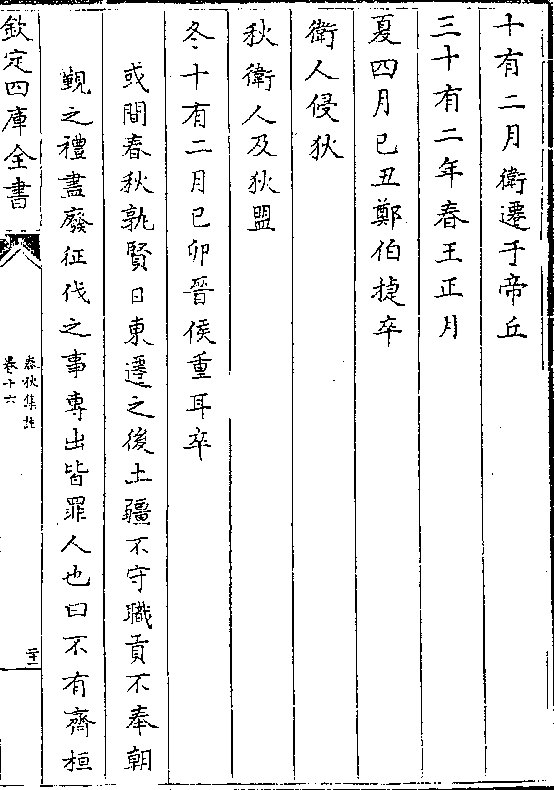 十有二月衛遷于帝丘
三十有二年春王正月
夏四月己丑鄭伯捷卒
衛人侵狄
秋衛人及狄盟
冬十有二月己卯晉侯重耳卒
或問春秋孰賢曰東遷之後土疆不守職貢不奉朝
覲之禮盡廢征伐之事專出皆罪人也曰不有齊桓
欽定四庫全書
春秋集註
卷十六
二十一